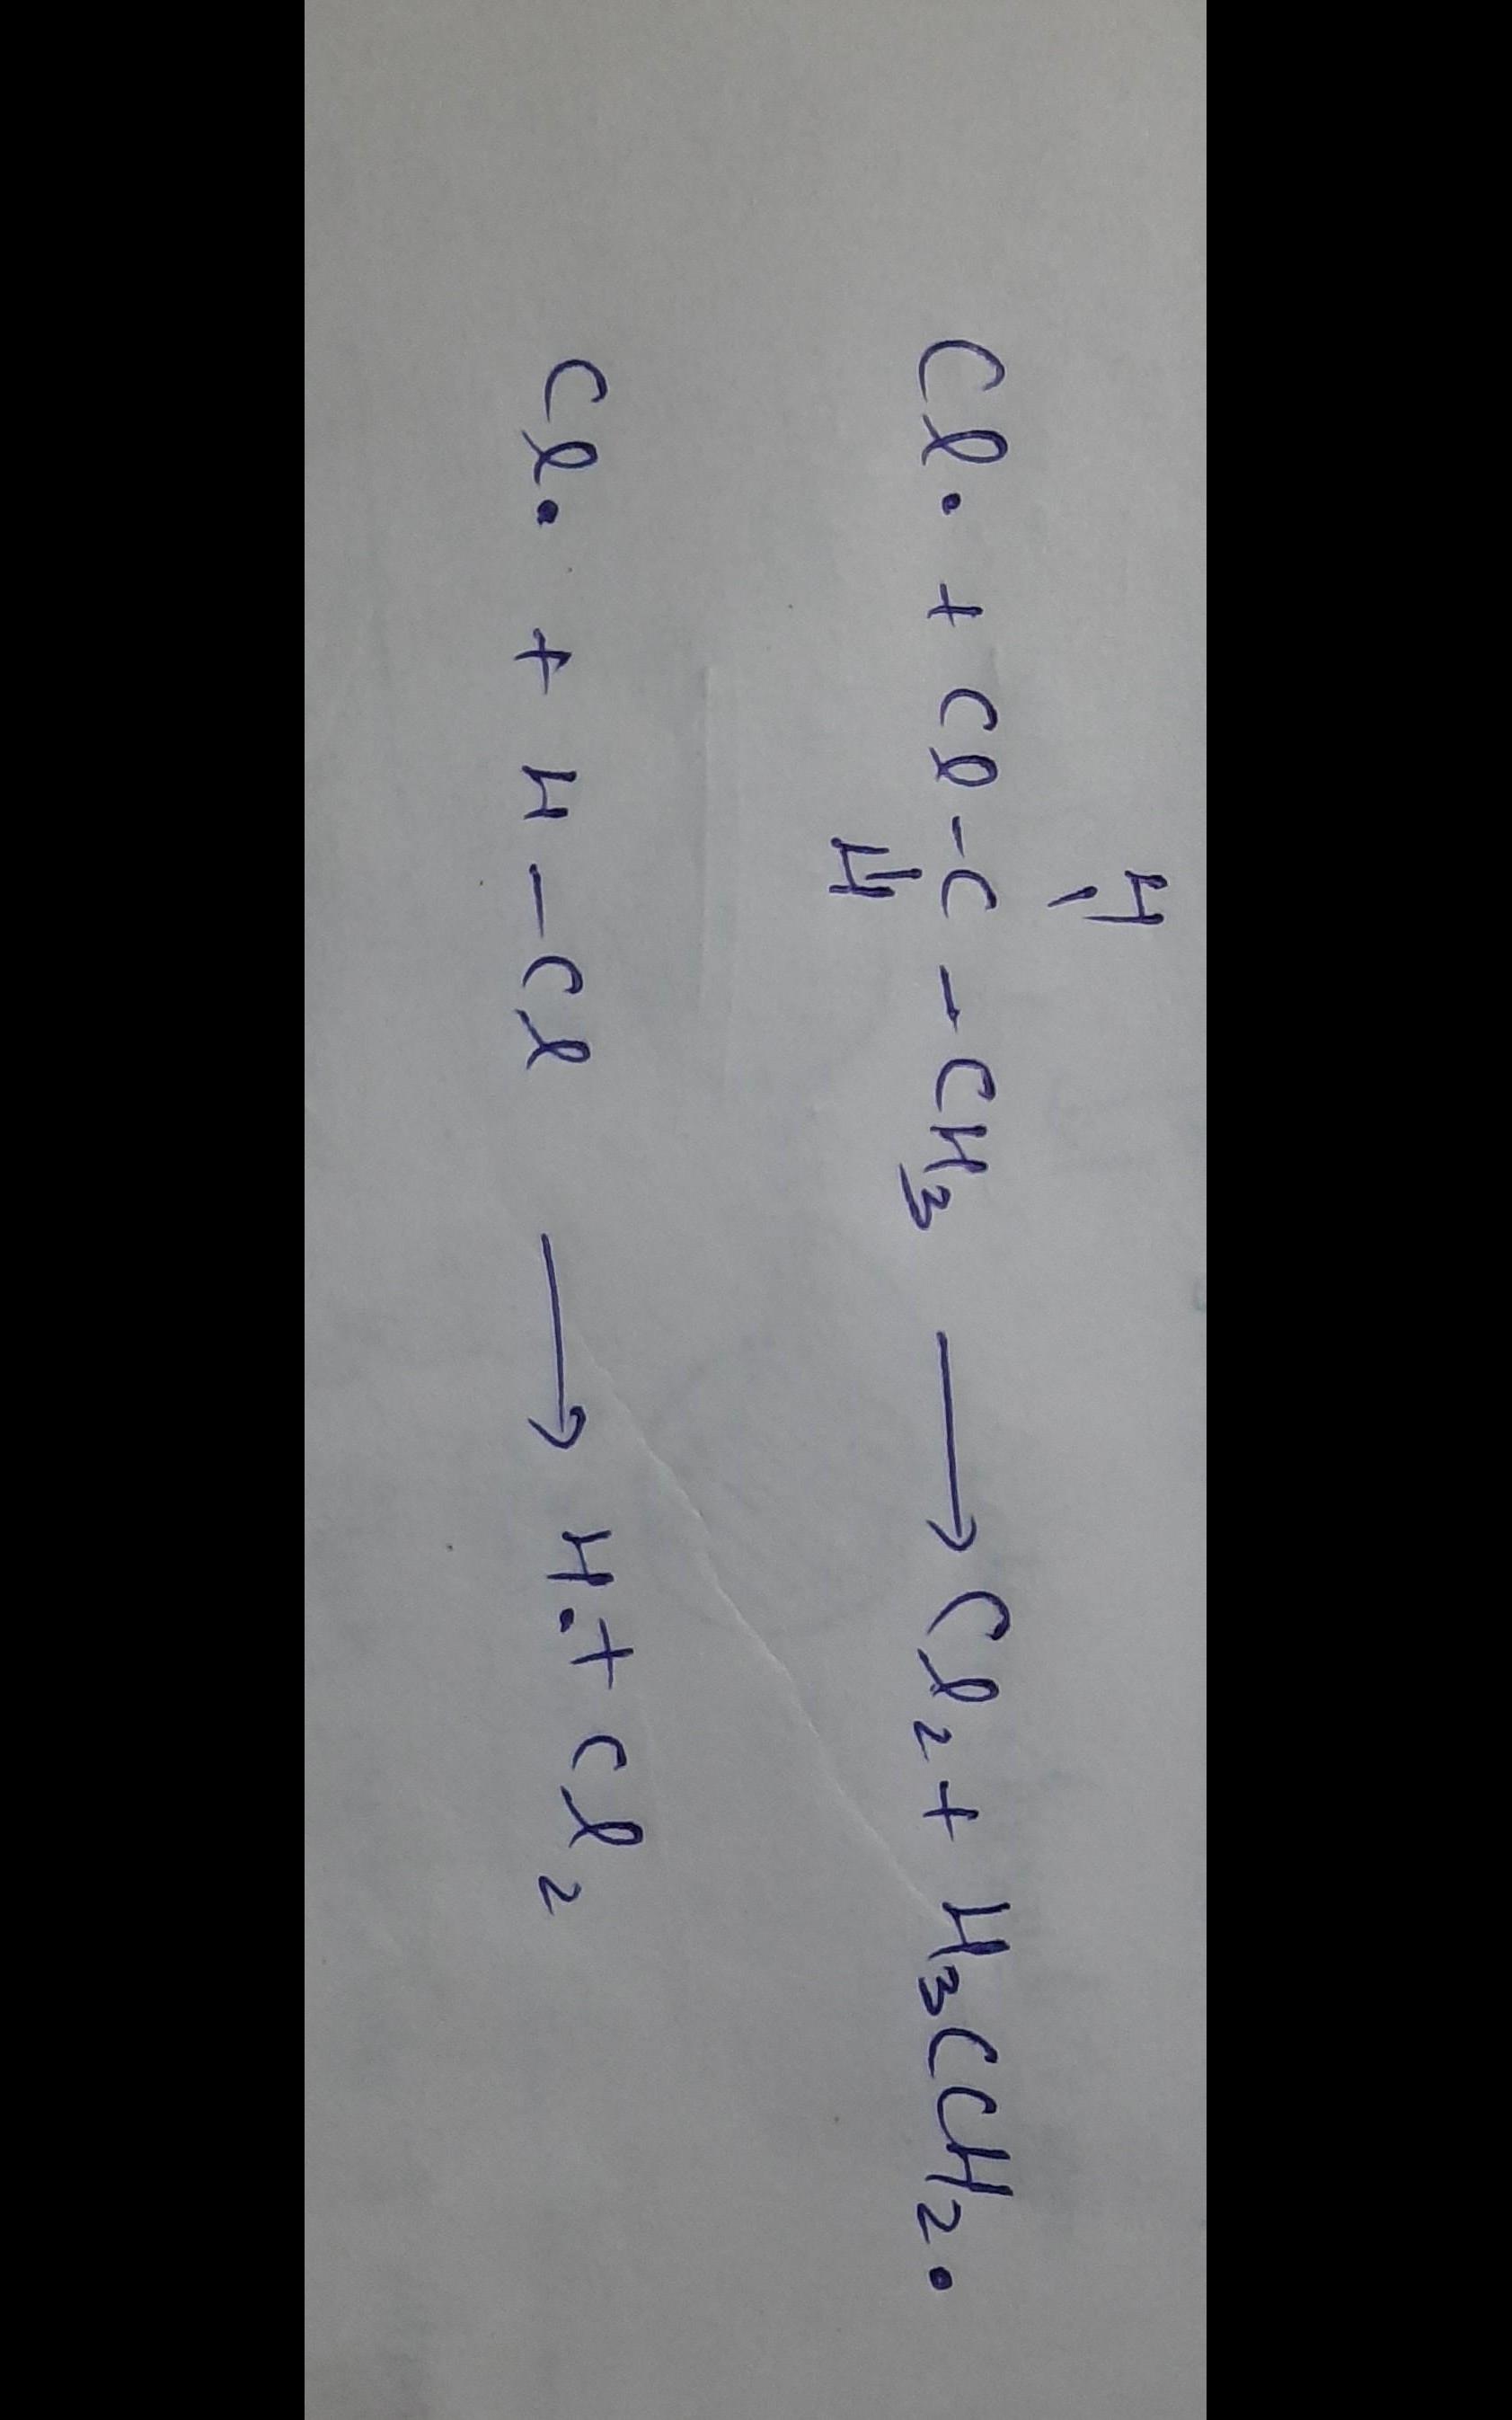 H
Cl· + Cl-C-CH₃ → Cl₂ + H₃CCH₂·
H
Cl· + H-Cl → H· + Cl₂